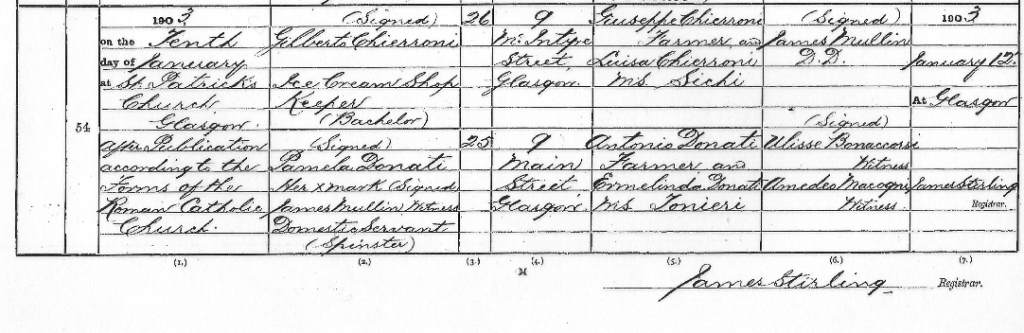 1903
on the Tenth
day of January
at St. Patrick's
Church
Glasgow.
After Publication
according to the
Forms of the
Roman Catholic
Church.
54
(Signed)
Gilberto Chierroni
Ice Cream Shop
Keeper
(Bachelor)
(Signed)
Pamela Donati
Her x mark Signed
James Mullin Witness
Domestic Servant
(Spinster)
26
25
9
McIntyre
Street,
Glasgow.
9
Main
Street
Glasgow.
Giuseppe Chierroni
Farmer and
Luisa Chierroni
M.S. Sichi
Antonio Donati
Farmer and
Ermelinda Donati
M.S. Tonieri
(Signed)
James Mullin
D.D.
(Signed)
Ulisse Bonaccorsi
Witness
Amedeo Macogni
Witness.
1903
January 12.
At Glasgow
James Stirling
Registrar.
(1.) (2.) (3.) (4.) (5.) (6.) (7.)
M
James Stirling Registrar.